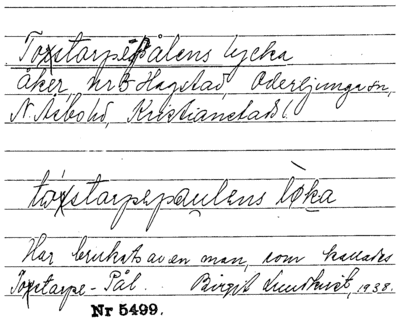 Toxstarpe-Pålens lycka
åker, nr 5 Hagstad, Oderljunga sn,
N. Åsbohd, Kristianstads l.
tóxstarpepaulens lø̀ka
Har brukats av en man, som kallades
Toxstarpe-Pål. Birgit Lundkvist, 1938.
Nr 5499.